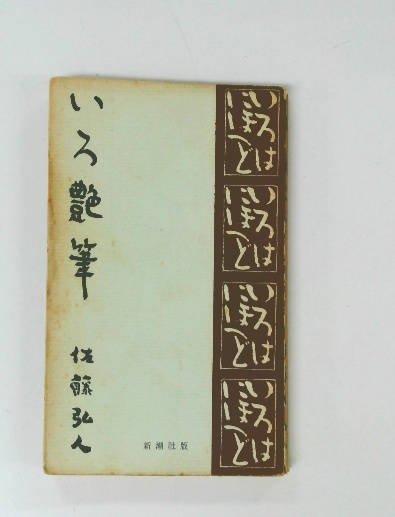 いろ艶筆
佐藤弘人
新潮社版
いろは
にほへと
いろは
にほへと
いろは
にほへと
いろは
にほへと